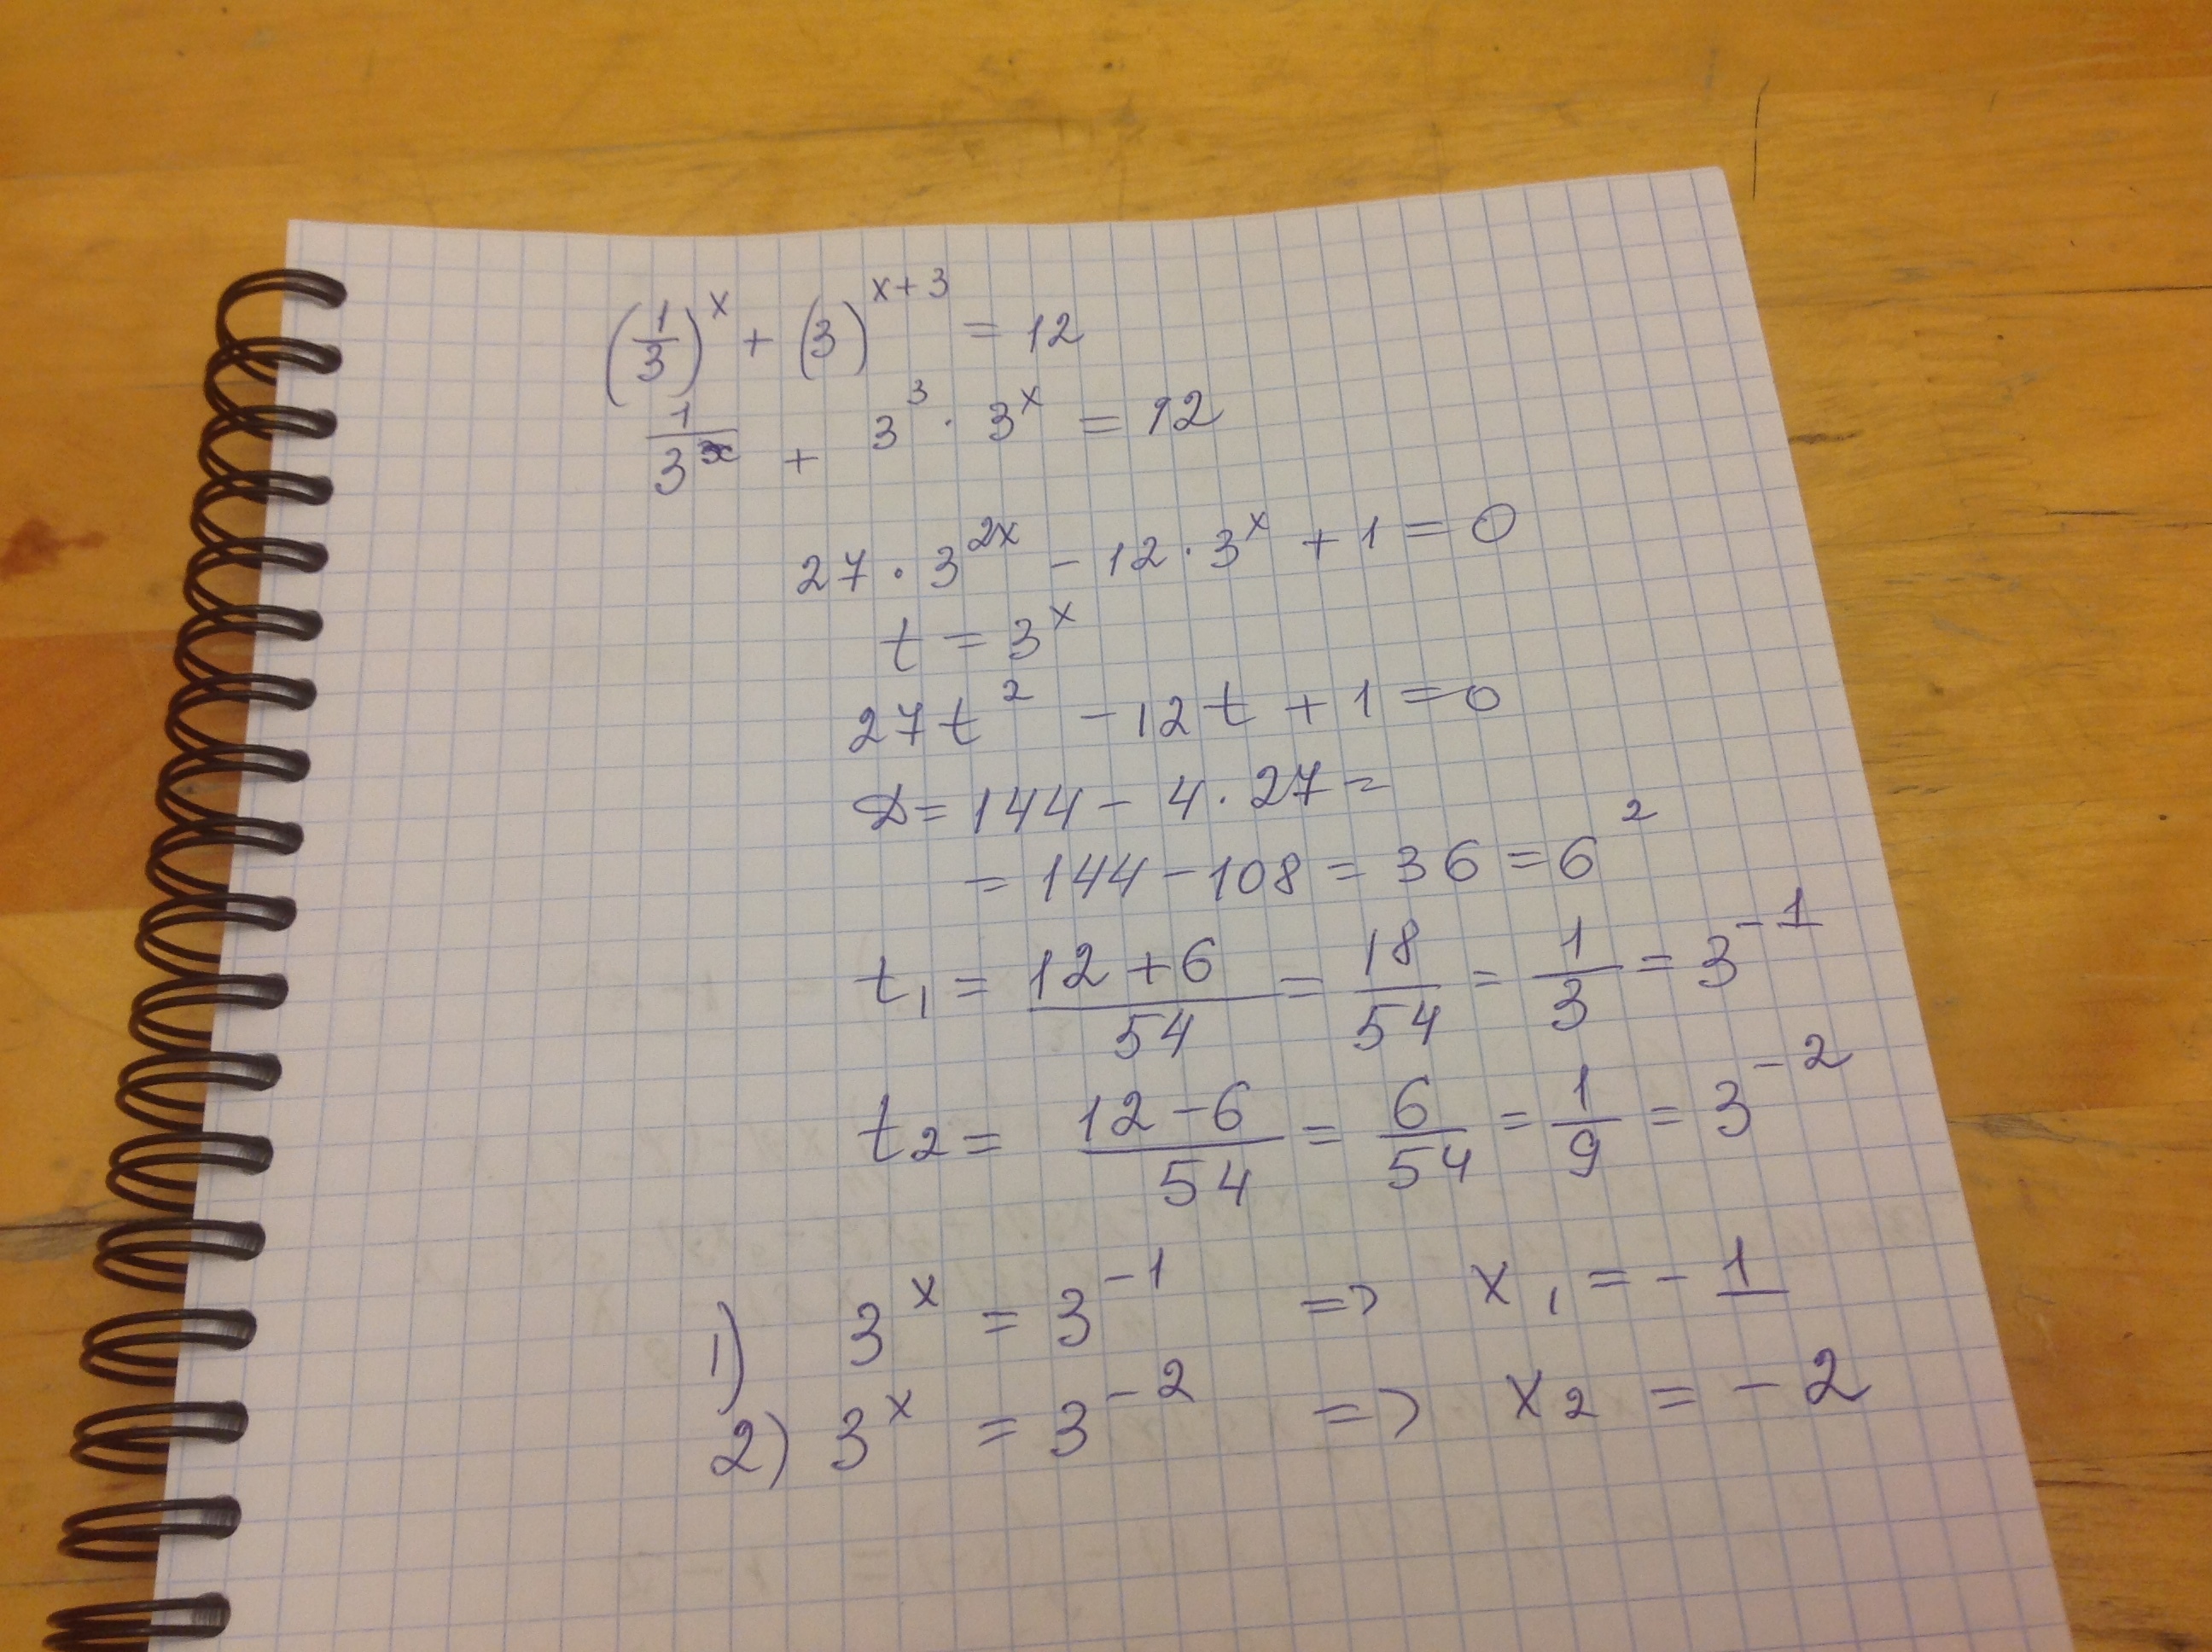 (1/3)^x + (3)^(x+3) = 12
1/3^x + 3^3 · 3^x = 12
27 · 3^(2x) - 12 · 3^x + 1 = 0
t = 3^x
27t^2 - 12t + 1 = 0
D = 144 - 4 · 27 =
= 144 - 108 = 36 = 6^2
t₁ = (12 + 6)/54 = 18/54 = 1/3 = 3^(-1)
t₂ = (12 - 6)/54 = 6/54 = 1/9 = 3^(-2)
1) 3^x = 3^(-1) => x₁ = -1
2) 3^x = 3^(-2) => x₂ = -2